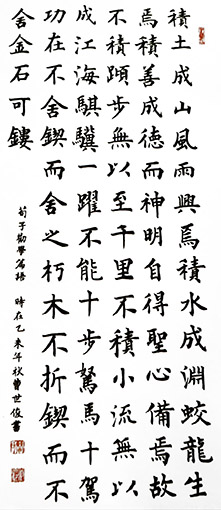 積土成山風雨興焉積水成淵蛟龍生
焉積善成德而神明自得聖心備焉故
不積蹞步無以至千里不積小流無以
成江海騏驥一躍不能十步駑馬十駕
功在不舍鍥而舍之朽木不折鍥而不
舍金石可鏤
荀子勸學篇語 時在乙未年秋曹世俊書